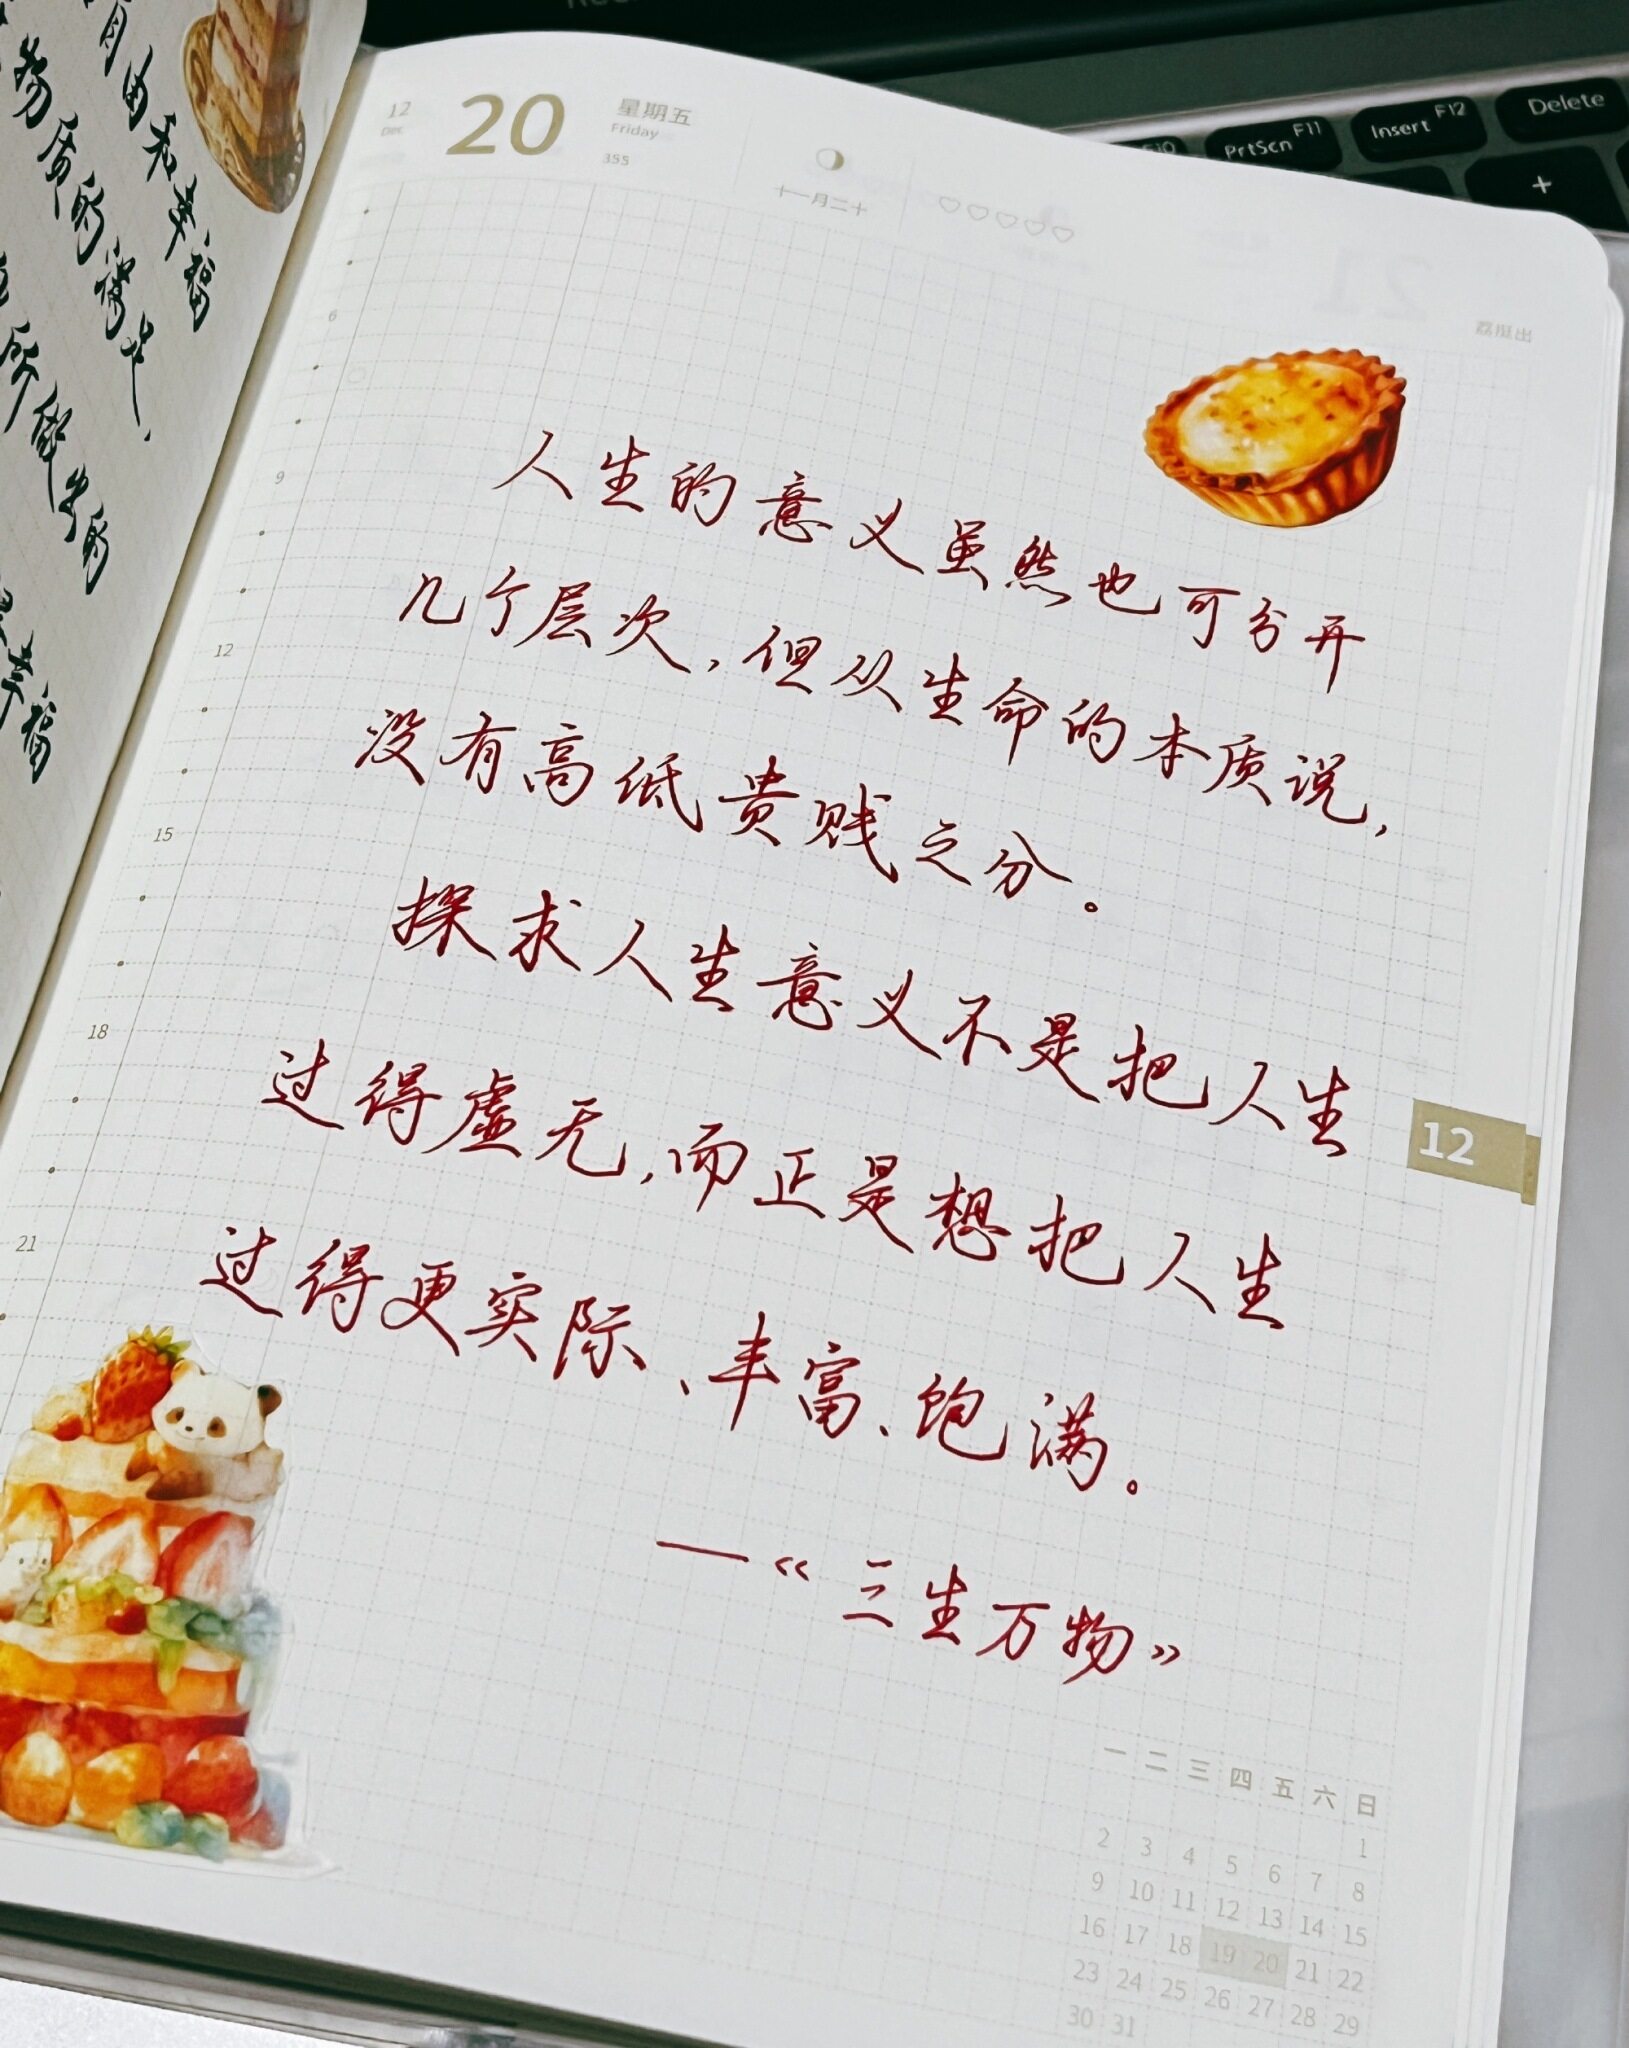 12
Dec
20
星期五
Friday
355
十一月二十
荔挺出
F10
PrtScn F11
Insert F12
Delete
+
6
9
12
15
18
21
人生的意义虽然也可分开
几个层次，但从生命的本质说，
没有高低贵贱之分。
探求人生意义不是把人生
过得虚无，而正是想把人生
过得更实际、丰富、饱满。
——《三生万物》
12
一 二 三 四 五 六 日
1
2 3 4 5 6 7 8
9 10 11 12 13 14 15
16 17 18 19 20 21 22
23 24 25 26 27 28 29
30 31
由和幸福
物质的
幸福